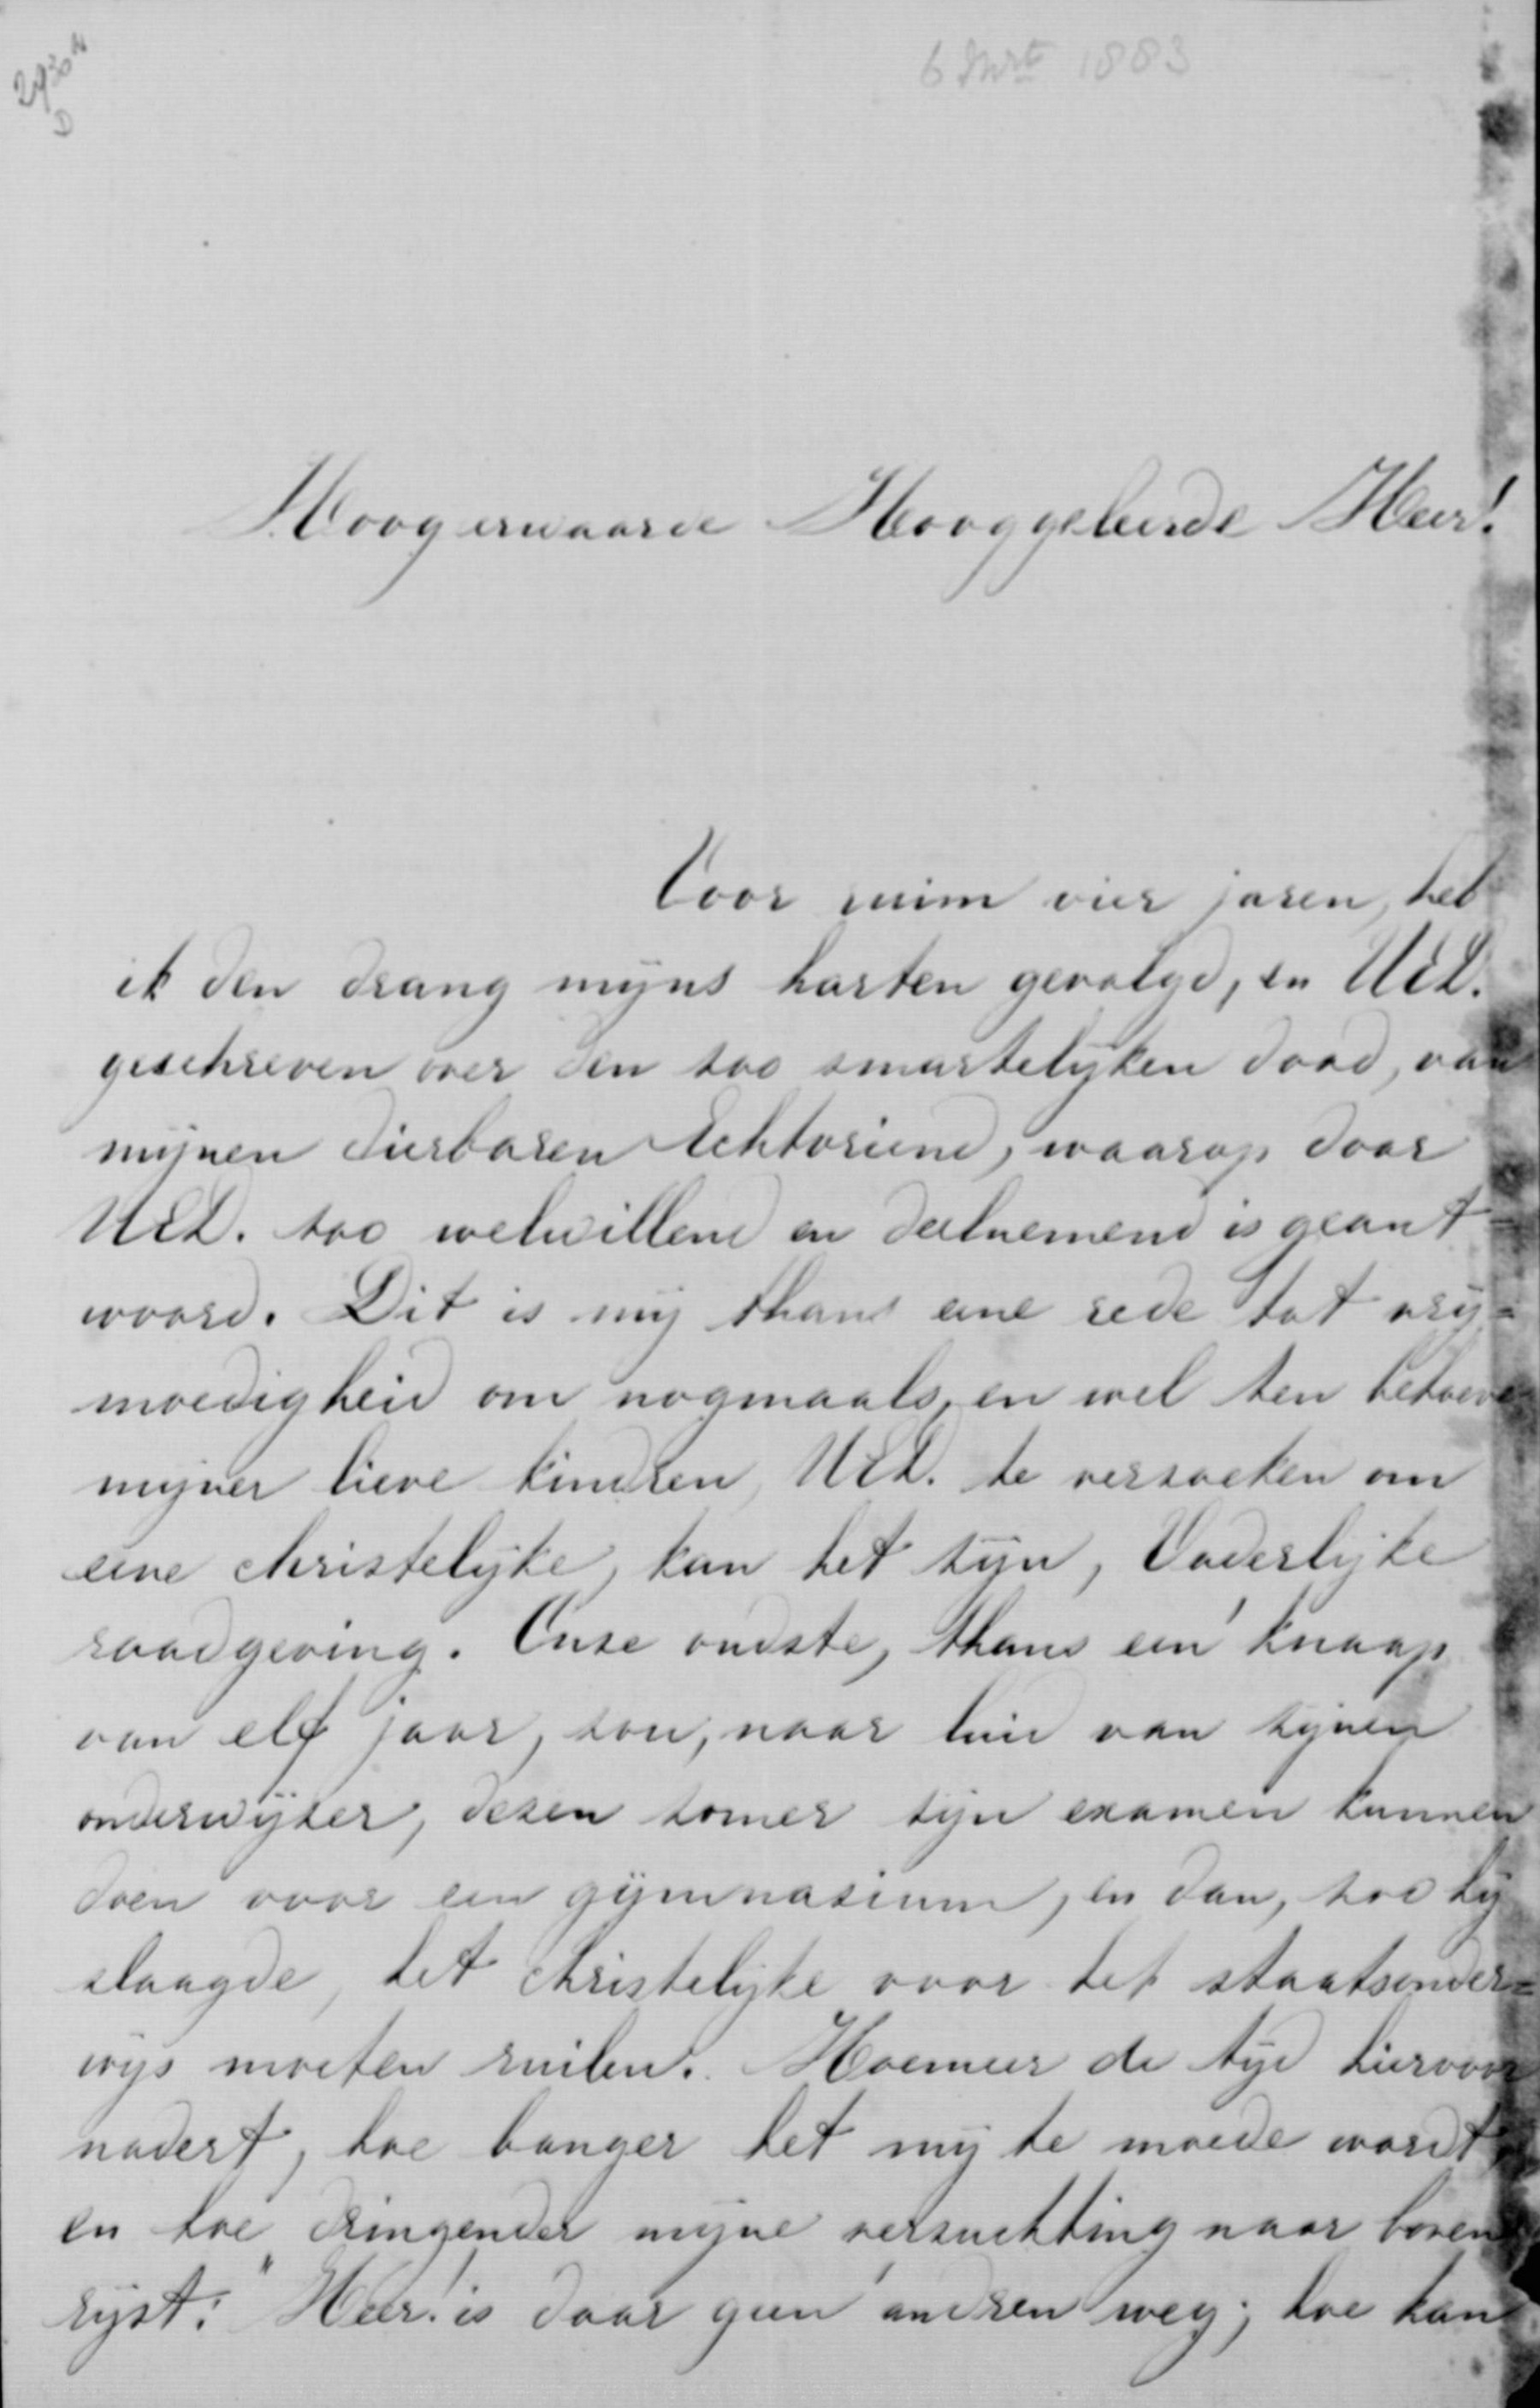 2930 a
D
6 Mrt 1883
Hoogerwaarde Hooggeleerde Heer!
Voor ruim vier jaren, heb
ik den drang mijns harten gevolgd, en UEd.
geschreven over den zoo smartelijken dood, van
mijnen dierbaren Echtvriend, waarop door
UEd. zoo welwillend en deelnemend is geant=
woord. Dit is mij thans eene rede tot vrij=
moedigheid om nogmaals, en wel ten behoeve
mijner lieve kindren, UEd. te verzoeken om
eene christelijke, kan het zijn, Vaderlijke
raadgeving. Onze oudste, thans een knaap
van elf jaar, zou, naar luid van zijnen
onderwijzer, dezen zomer zijn examen kunnen
doen voor een gijmnasium, en dan, zoo hij
slaagde, het christelijke voor het staatsonder=
wijs moeten ruilen. Hoemeer de tijd hiervoor
nadert, hoe banger het mij te moede wordt,
en hoe dringender mijne verzuchting naar boven
rijst: "Heer! is daar geen andren weg; hoe kan